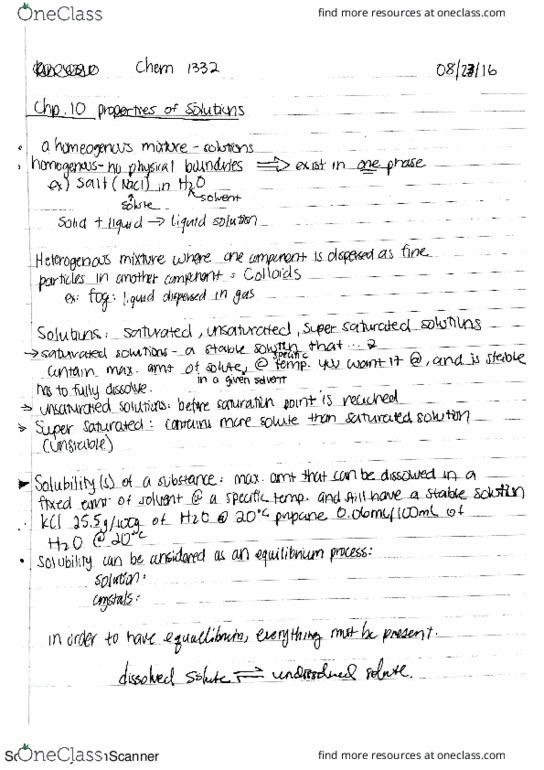 OneClass
find more resources at oneclass.com
Chem 1332
08/23/16
Chp. 10 properties of Solutions
a homeogenous mixture - solutions
homogenous - no physical boundaries ⟹ exist in one phase
ex) Salt (NaCl) in H2O
solute
solvent
Solid + liquid → liquid solution
Heterogenous mixture where one component is dispersed as fine
particles in another component = Colloids
ex: fog: liquid dispersed in gas
Solutions: saturated, unsaturated, super saturated solutions
→ saturated solutions - a stable solution that ...
contain max. amt of solute, @ specific temp. you want it @, and is stable
in a given solvent
has to fully dissolve.
→ unsaturated solutions: before saturation point is reached
→ Super Saturated: contains more solute than saturated solution
(unstable)
Solubility (s) of a substance: max. amt that can be dissolved in a
fixed amt of solvent @ a specific temp. and still have a stable solution
KCl 25.5g/100g of H2O @ 20°C propane 0.06mL/100mL of
H2O @ 20°C
• Solubility can be considered as an equilibrium process:
solution:
crystals:
in order to have equallibrium, everything must be present.
dissolved solute ⇌ undissolved solute.
OneClass
Scanner
find more resources at oneclass.com